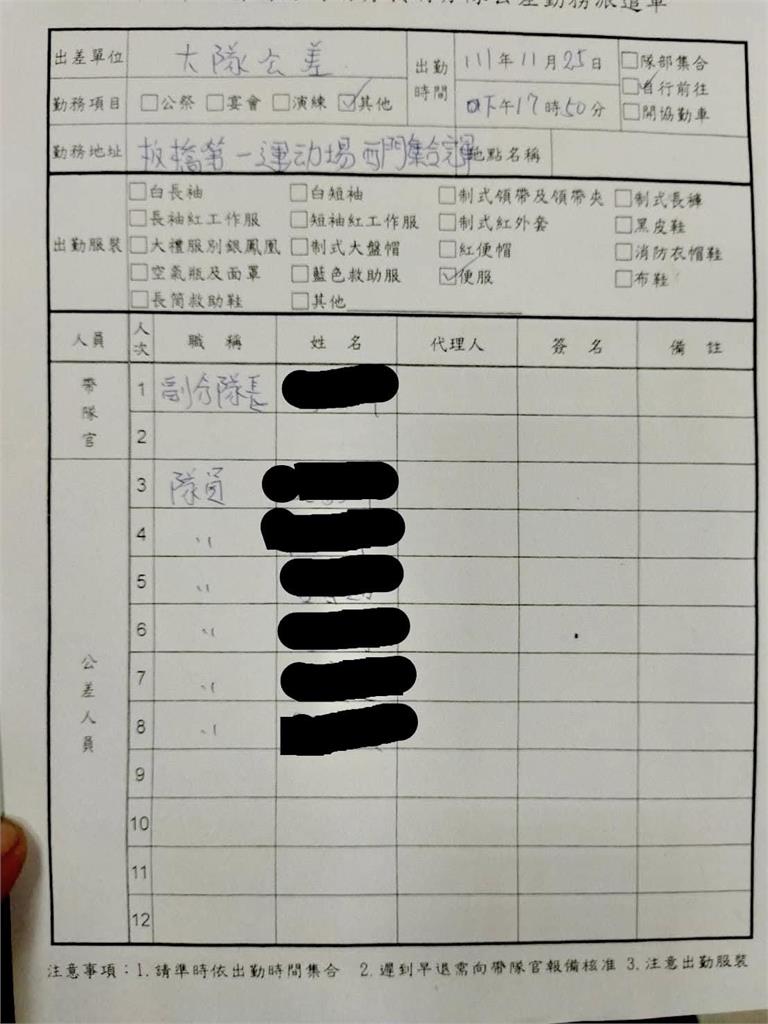 隊公差勤務派遣單
出差單位 大隊公差 出勤時間 111年11月25日 □隊部集合
☑自行前往
勤務項目 □公祭 □宴會 □演練 ☑其他 下午17時50分 □開協勤車
勤務地址 板橋第一運动場西門集合完 地點名稱
出勤服裝
□白長袖 □白短袖 □制式領帶及領帶夾 □制式長褲
□長袖紅工作服 □短袖紅工作服 □制式紅外套 □黑皮鞋
□大禮服別銀鳳凰 □制式大盤帽 □紅便帽 □消防衣帽鞋
□空氣瓶及面罩 □藍色救助服 ☑便服 □布鞋
□長筒救助鞋 □其他
人員 人次 職稱 姓名 代理人 簽名 備註
帶隊官
1 副分隊長
2
公差人員
3 隊員
4 〃
5 〃
6 〃
7 〃
8 〃
9
10
11
12
注意事項：1.請準時依出勤時間集合 2.遲到早退需向帶隊官報備核准 3.注意出勤服裝